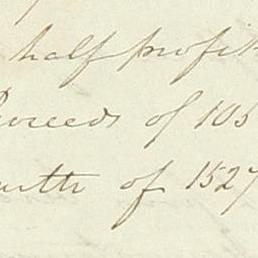 half profit
Proceeds of 105
of 1527